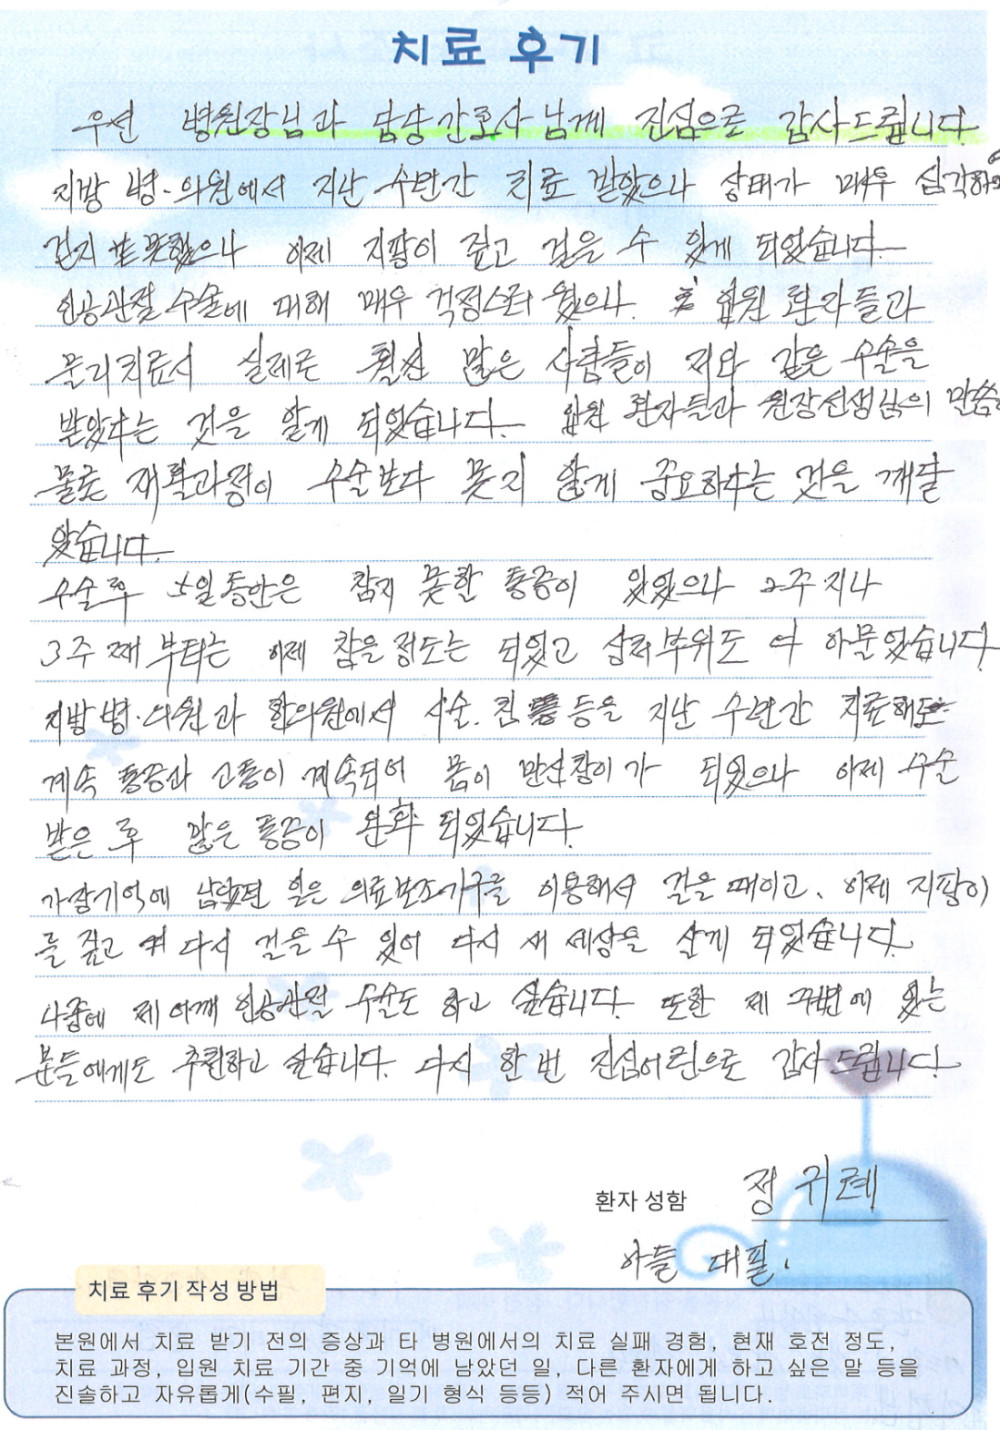 치료 후기
우선 병원장님과 담당간호사님께 진심으로 감사드립니다.
지방 병·의원에서 지난 수년간 치료 받았으나 상태가 매우 심각하여
걷지 못했으나 이제 지팡이 짚고 걸을 수 있게 되었습니다.
인공관절 수술에 대해 매우 걱정스러웠으나. 입원 환자들과
물리치료서 실제로 훨씬 많은 사람들이 저와 같은 수술을
받았다는 것을 알게 되었습니다. 입원 환자들과 원장선생님의 말씀
물론 재활과정이 수술보다 못지 않게 중요하다는 것을 깨달
았습니다.
수술후 5일동안은 참지 못한 통증이 있었으나 2주 지나
3주째부터는 이제 참을 정도는 되었고 상처부위도 다 아물었습니다.
지방 병·의원과 한의원에서 시술. 침 등을 지난 수년간 치료해도
계속 통증과 고통이 계속되어 몸이 만신창이가 되었으나 이제 수술
받은 후 많은 통증이 완화 되었습니다.
가장기억에 남았던 일은 의료보조기구를 이용해서 걸을때이고, 이제 지팡이
를 짚고 다시 걸을 수 있어 다시 새 세상을 살게 되었습니다.
나중에 제 어깨 인공관절 수술도 하고 싶습니다. 또한 제 주변에 있는
분들에게도 추천하고 싶습니다. 다시 한 번 진심어린으로 감사드립니다.
환자 성함 정귀례
아들 대필.
치료 후기 작성 방법
본원에서 치료 받기 전의 증상과 타 병원에서의 치료 실패 경험, 현재 호전 정도,
치료 과정, 입원 치료 기간 중 기억에 남았던 일, 다른 환자에게 하고 싶은 말 등을
진솔하고 자유롭게(수필, 편지, 일기 형식 등등) 적어 주시면 됩니다.